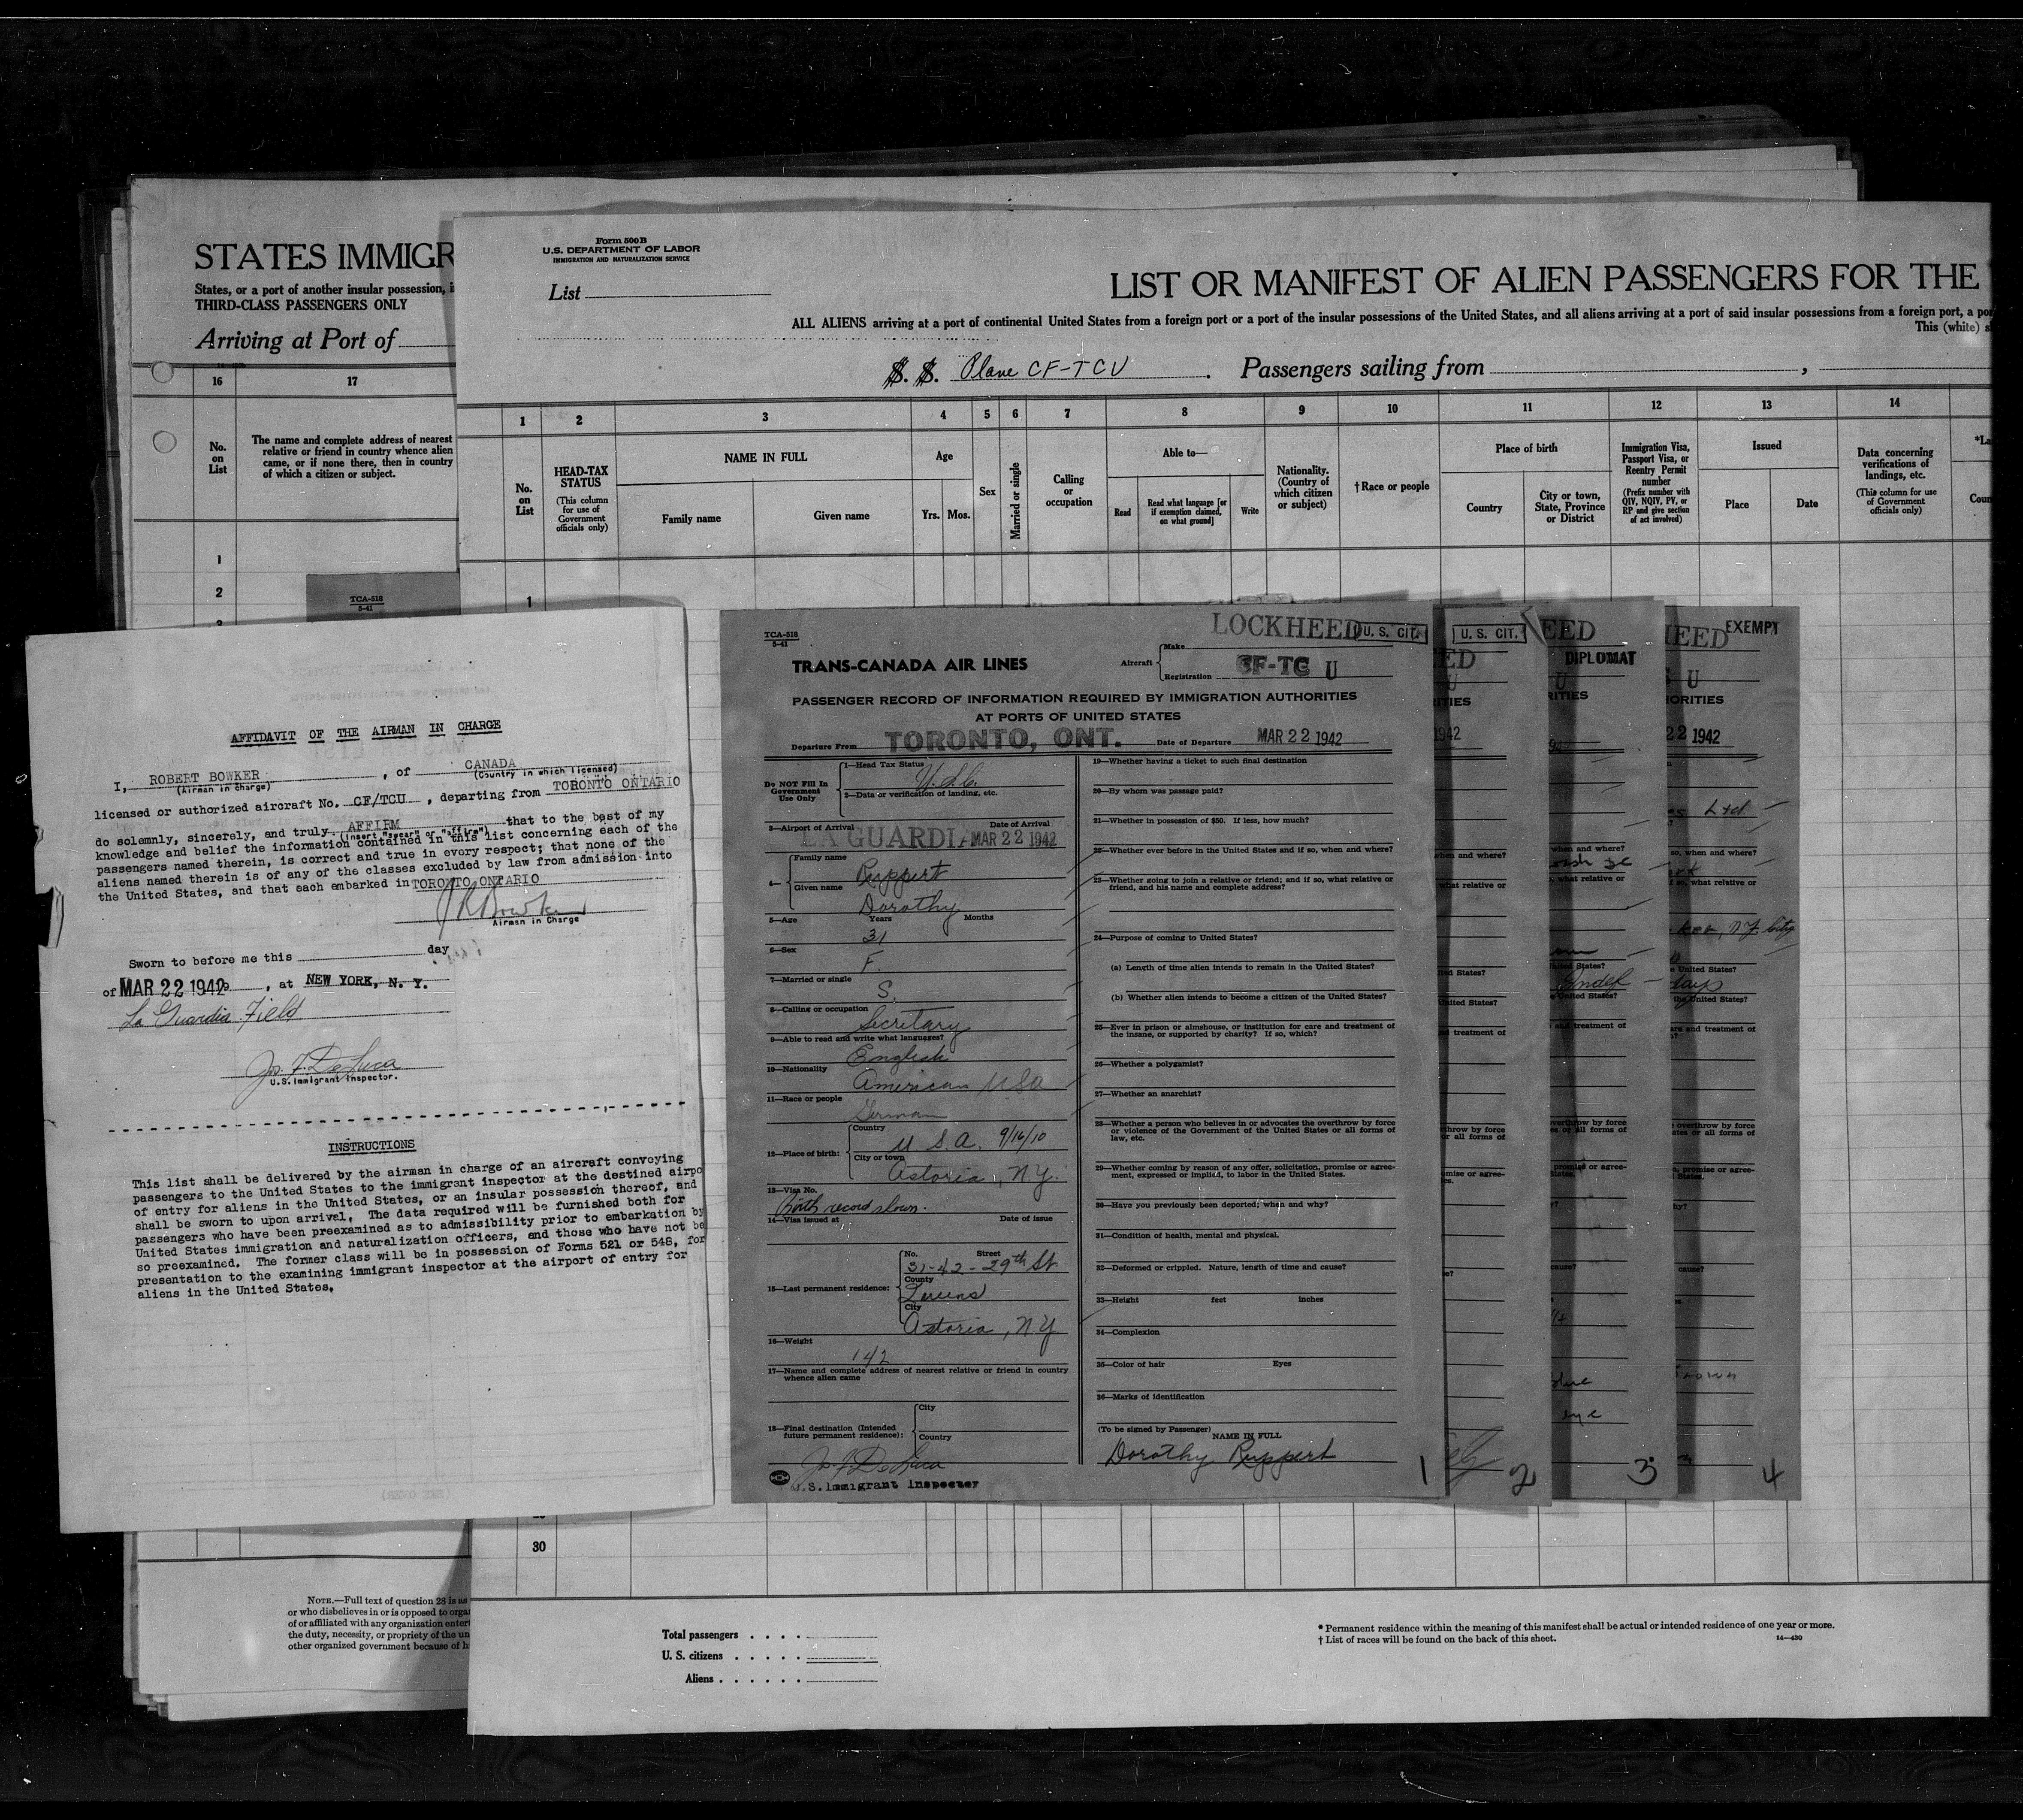 STATES IMMIGR
States, or a port of another insular possession, i
THIRD-CLASS PASSENGERS ONLY
Arriving at Port of
16
17
No. on List
The name and complete address of nearest
relative or friend in country whence alien
came, or if none there, then in country
of which a citizen or subject.
1
2
TCA-518
5-41
NOTE.—Full text of question 28 is as
or who disbelieves in or is opposed to orga
of or affiliated with any organization entert
the duty, necessity, or propriety of the un
other organized government because of h
Form 500B
U.S. DEPARTMENT OF LABOR
IMMIGRATION AND NATURALIZATION SERVICE
List
LIST OR MANIFEST OF ALIEN PASSENGERS FOR THE
ALL ALIENS arriving at a port of continental United States from a foreign port or a port of the insular possessions of the United States, and all aliens arriving at a port of said insular possessions from a foreign port, a por
This (white) s
S. S. Plane CF-TCU. Passengers sailing from ,
1 2 3 4 5 6 7 8 9 10 11 12 13 14
No. on List
HEAD-TAX STATUS
(This column for use of Government officials only)
NAME IN FULL
Family name
Given name
Age
Yrs. Mos.
Sex
Married or single
Calling or occupation
Able to—
Read
Read what language [or if exemption claimed, on what ground]
Write
Nationality. (Country of which citizen or subject)
†Race or people
Place of birth
Country
City or town, State, Province or District
Immigration Visa, Passport Visa, or Reentry Permit number
(Prefix number with QIV, NQIV, PV, or RP and give section of act involved)
Issued
Place
Date
Data concerning verifications of landings, etc.
(This column for use of Government officials only)
*La
Coun
1
30
Total passengers . . . .
U. S. citizens . . . . .
Aliens . . . . . .
* Permanent residence within the meaning of this manifest shall be actual or intended residence of one year or more.
† List of races will be found on the back of this sheet.
14—430
AFFIDAVIT OF THE AIRMAN IN CHARGE
I, ROBERT BOWKER , of CANADA
(Airman in Charge) (Country in which licensed)
licensed or authorized aircraft No. CF/TCU , departing from TORONTO ONTARIO
do solemnly, sincerely, and truly AFFIRM that to the best of my
(insert "swear" or "affirm")
knowledge and belief the information contained in this list concerning each of the
passengers named therein, is correct and true in every respect; that none of the
aliens named therein is of any of the classes excluded by law from admission into
the United States, and that each embarked in TORONTO ONTARIO
J R Bowker
Airman in Charge
Sworn to before me this day
of MAR 22 1942 , at NEW YORK, N. Y.
La Guardia Field
Jos. F. DeLuca
U.S. Immigrant Inspector.
INSTRUCTIONS
This list shall be delivered by the airman in charge of an aircraft conveying
passengers to the United States to the immigrant inspector at the destined airpo
of entry for aliens in the United States, or an insular possession thereof, and
shall be sworn to upon arrival. The data required will be furnished both for
passengers who have been preexamined as to admissibility prior to embarkation by
United States immigration and naturalization officers, and those who have not be
so preexamined. The former class will be in possession of Forms 521 or 548, for
presentation to the examining immigrant inspector at the airport of entry for
aliens in the United States.
TCA-518
5-41
LOCKHEED
U. S. CIT.
TRANS-CANADA AIR LINES
Aircraft
Make
Registration CF-TC U
PASSENGER RECORD OF INFORMATION REQUIRED BY IMMIGRATION AUTHORITIES
AT PORTS OF UNITED STATES
Departure From TORONTO, ONT. Date of Departure MAR 22 1942
Do NOT Fill In
Government
Use Only
1—Head Tax Status
U.S.C.
2—Data or verification of landing, etc.
3—Airport of Arrival Date of Arrival
LA GUARDIA MAR 22 1942
4— Family name Ruppert
Given name Dorothy
5—Age Years Months
31
6—Sex
F.
7—Married or single
S.
8—Calling or occupation
Secretary
9—Able to read and write what languages?
English
10—Nationality
American USA
11—Race or people
German
12—Place of birth:
Country
U. S. A. 9/16/10
City or town
Astoria, N.Y.
13—Visa No.
Birth record shown.
14—Visa issued at Date of issue
15—Last permanent residence:
No. Street
31-42-29th St
County
Queens
City
Astoria, NY
16—Weight
142
17—Name and complete address of nearest relative or friend in country
whence alien came
18—Final destination (Intended
future permanent residence):
City
Country
Jos. F. DeLuca
U.S. Immigrant Inspector
19—Whether having a ticket to such final destination
20—By whom was passage paid?
21—Whether in possession of $50. If less, how much?
22—Whether ever before in the United States and if so, when and where?
23—Whether going to join a relative or friend; and if so, what relative or
friend, and his name and complete address?
24—Purpose of coming to United States?
(a) Length of time alien intends to remain in the United States?
(b) Whether alien intends to become a citizen of the United States?
25—Ever in prison or almshouse, or institution for care and treatment of
the insane, or supported by charity? If so, which?
26—Whether a polygamist?
27—Whether an anarchist?
28—Whether a person who believes in or advocates the overthrow by force
or violence of the Government of the United States or all forms of
law, etc.
29—Whether coming by reason of any offer, solicitation, promise or agree-
ment, expressed or implied, to labor in the United States.
30—Have you previously been deported; when and why?
31—Condition of health, mental and physical.
32—Deformed or crippled. Nature, length of time and cause?
33—Height feet inches
34—Complexion
35—Color of hair Eyes
36—Marks of identification
(To be signed by Passenger)
NAME IN FULL
Dorothy Ruppert
1
U. S. CIT.
2
EED
DIPLOMAT
3
EED
EXEMPT
U
22 1942
Ltd
N.Y. City
days
4